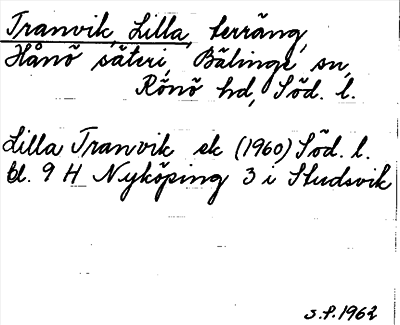 Tranvik, Lilla, terräng,
Hånö säteri, Bälinge sn,
Rönö hd, Söd. l.
Lilla Tranvik ek (1960) Söd. l.
bl. 9 H Nyköping 3 i Studsvik
S.P. 1962